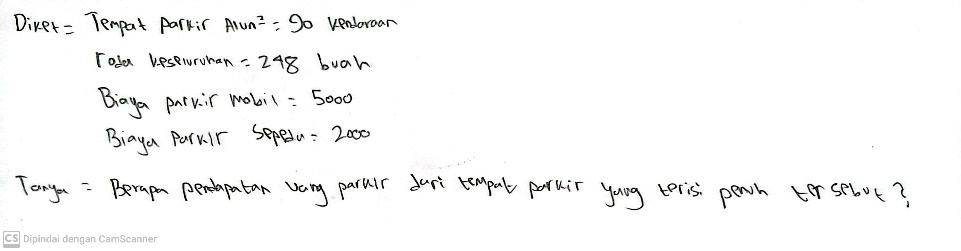 Diket = Tempat parkir Alun² = 90 kendaraan
roda keseluruhan = 248 buah
Biaya parkir mobil = 5000
Biaya parkir sepeda = 2000
Tanya = Berapa pendapatan uang parkir dari tempat parkir yang terisi penuh tersebut?
CS Dipindai dengan CamScanner